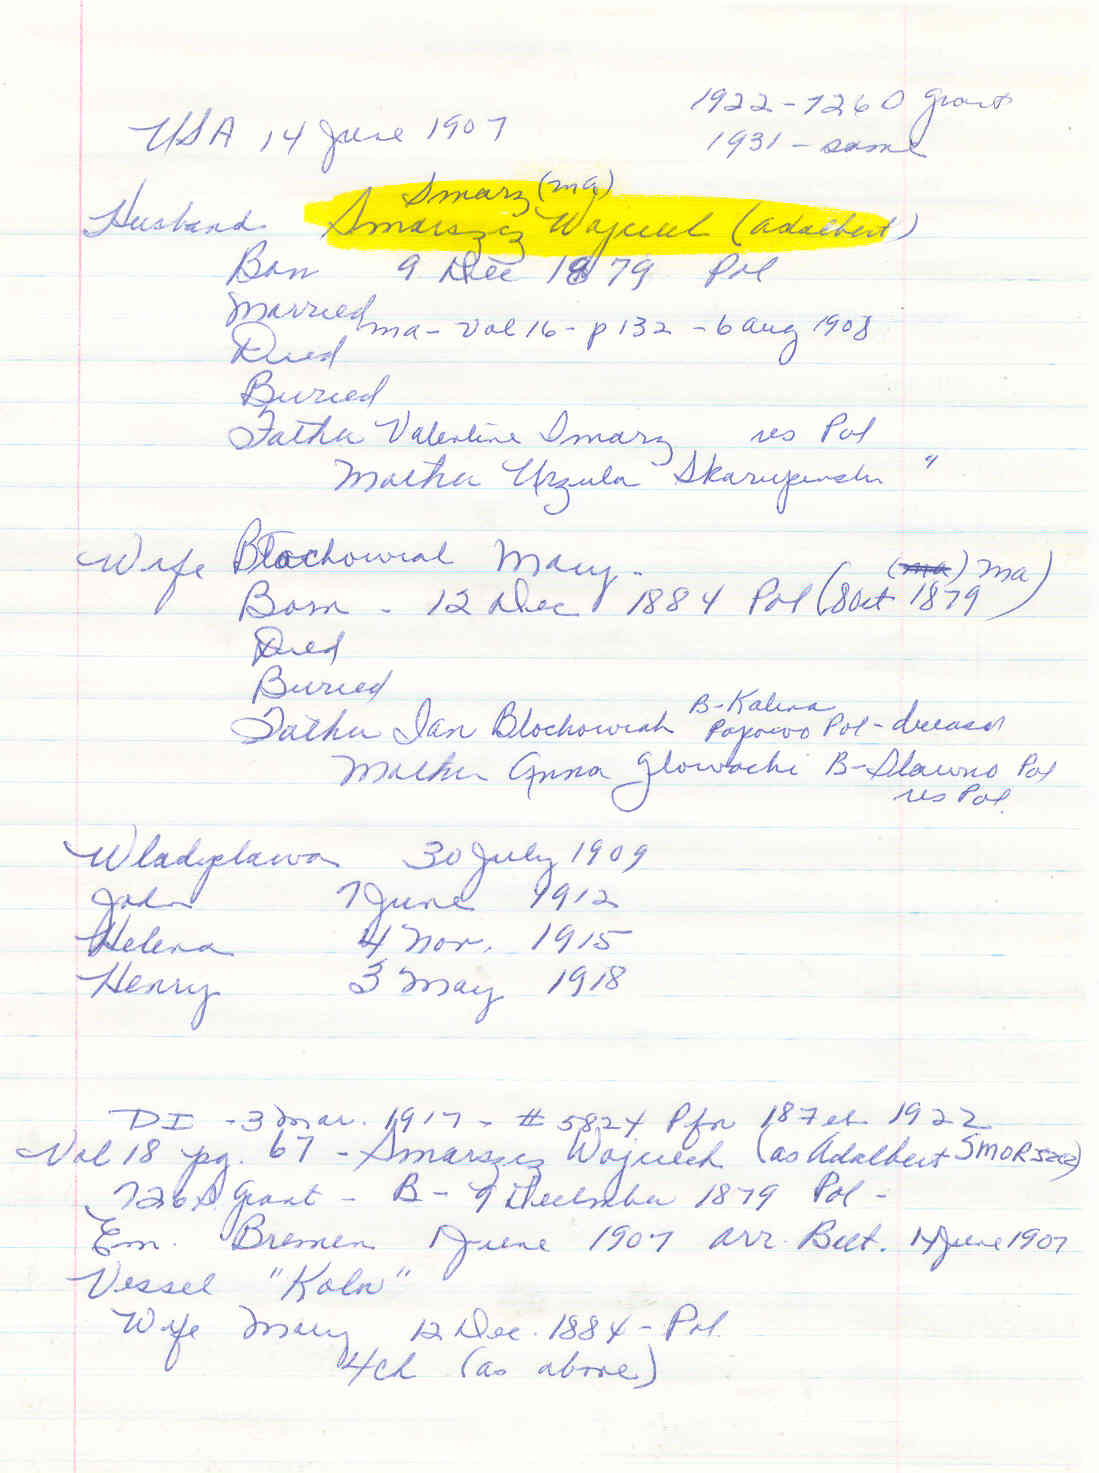 1922-7260 Grant
USA 14 June 1907
1931 - same
Smarz (ma)
Husband Smarszcz Wojciech (Adalbert)
Born 9 Dec 1879 Pol
Married ma - Vol 16 - p 132 - 6 Aug 1908
Died
Buried
Father Valentine Smarz res Pol
Mother Urzula "
Wife Blochowiak Mary - (ma) ma)
Born - 12 Dec 1884 Pol (8 Oct 1879
Died
Buried
B-Kalina
Father Jan Blochowiak Popowo Pol - deceased
Mother Anna Glowacki B-Slawno Pol
res Pol.
Wladyslawa 30 July 1909
John 7 June 1912
Helena 4 Nov. 1915
Henry 3 May 1918
DI - 3 Mar. 1917 - # 5824 Pfn 18 Feb 1922
Vol 18 pg. 67 - Smarszcz Wojciech (as Adalbert
Grant - B - 9 December 1879 Pol -
Em. Bremen 1 June 1907 arr. Balt. 14 June 1907
Vessel "Koln"
Wife Mary 12 Dec. 1884 - Pol.
4 ch (as above)